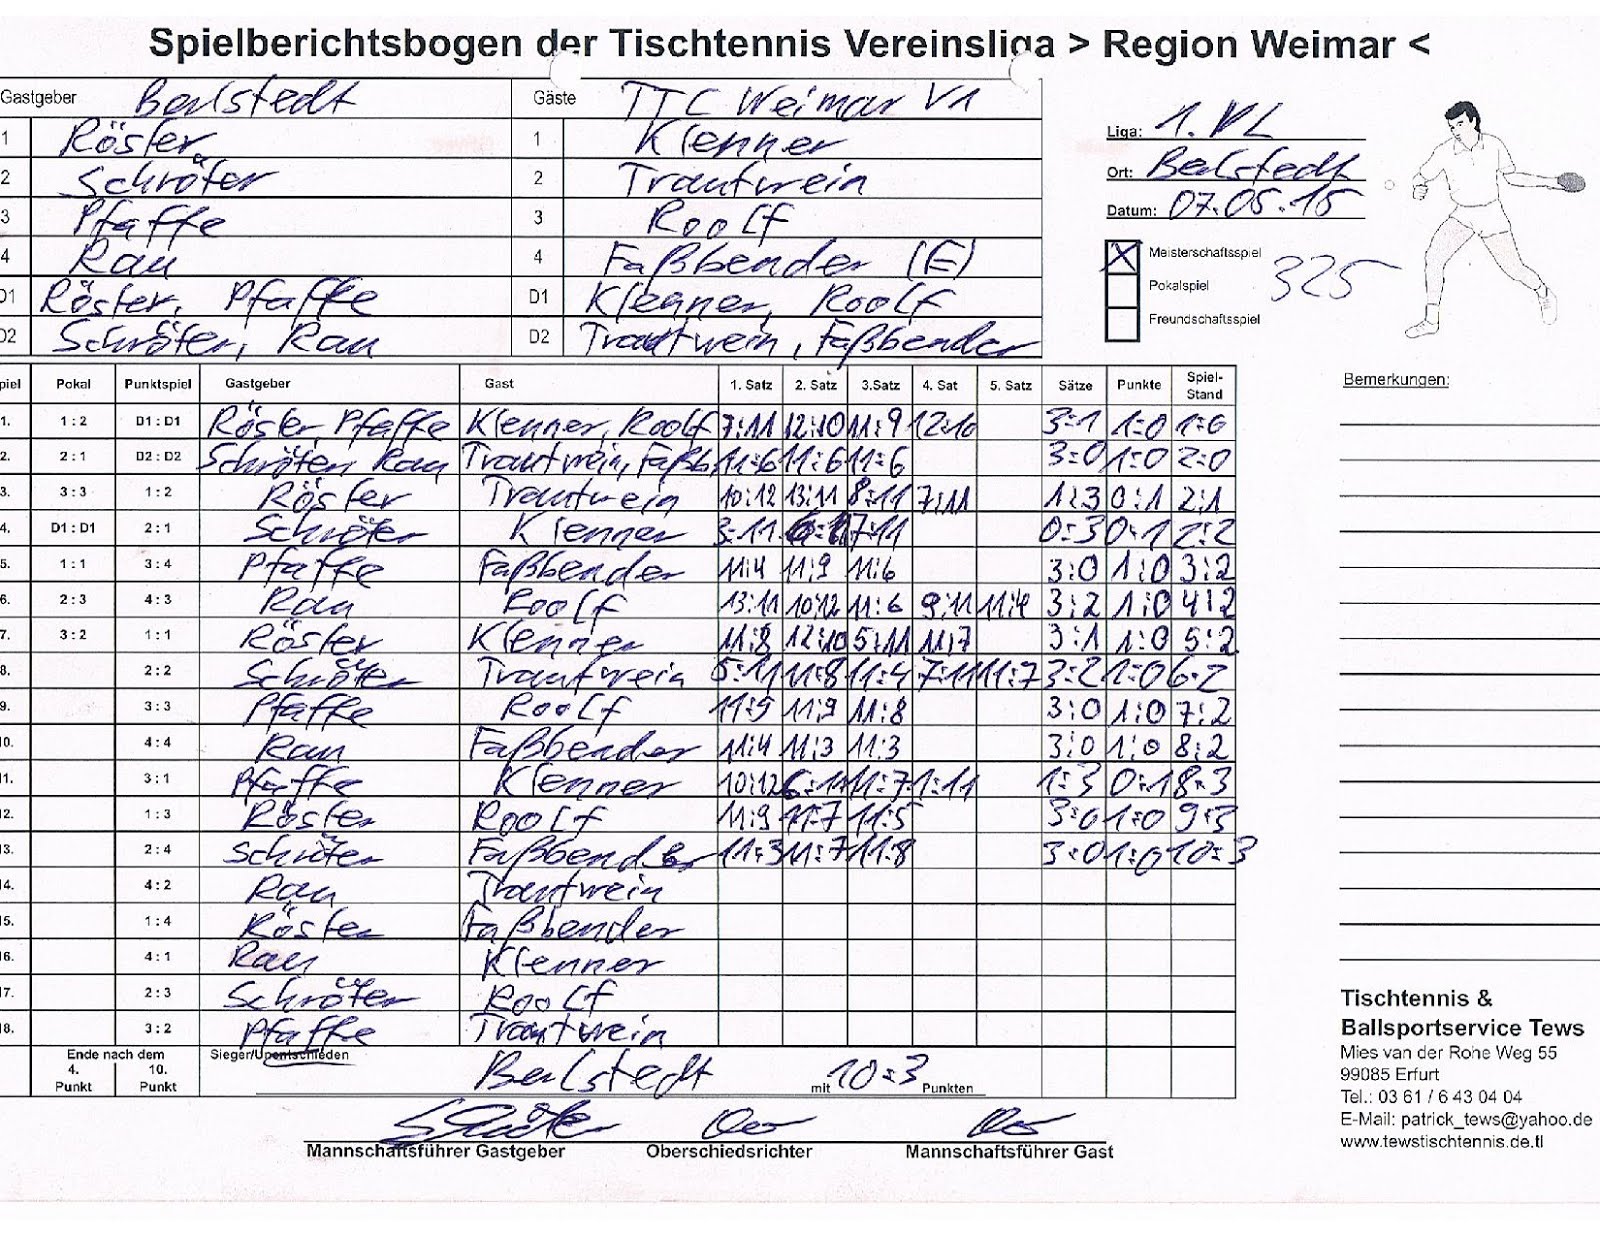 Spielberichtsbogen der Tischtennis Vereinsliga > Region Weimar <
Gastgeber Berlstedt Gäste TTC Weimar V1
1 Röster 1 Klenner
2 Schröter 2 Trautwein
3 Pfaffe 3 Roolf
4 Rau 4 Faßbender (E)
D1 Röster, Pfaffe D1 Klenner, Roolf
D2 Schröter, Rau D2 Trautwein, Faßbender
Liga: 1. VL
Ort: Berlstedt
Datum: 07.05.15
X Meisterschaftsspiel 325
Pokalspiel
Freundschaftsspiel
Bemerkungen:
piel Pokal Punktspiel Gastgeber Gast 1. Satz 2. Satz 3.Satz 4. Sat 5. Satz Sätze Punkte Spiel-Stand
1. 1 : 2 D1 : D1 Röster, Pfaffe Klenner, Roolf 7:11 12:10 11:9 12:10 3:1 1:0 1:0
2. 2 : 1 D2 : D2 Schröter, Rau Trautwein, Faßb. 11:6 11:6 11:6 3:0 1:0 2:0
3. 3 : 3 1 : 2 Röster Trautwein 10:12 13:11 8:11 7:11 1:3 0:1 2:1
4. D1 : D1 2 : 1 Schröter Klenner 3:11 7:11 0:3 0:1 2:2
5. 1 : 1 3 : 4 Pfaffe Faßbender 11:4 11:9 11:6 3:0 1:0 3:2
6. 2 : 3 4 : 3 Rau Roolf 13:11 10:12 11:6 9:11 11:4 3:2 1:0 4:2
7. 3 : 2 1 : 1 Röster Klenner 11:8 12:10 5:11 11:7 3:1 1:0 5:2
8. 2 : 2 Schröter Trautwein 5:11 11:8 11:4 7:11 11:7 3:2 1:0 6:2
9. 3 : 3 Pfaffe Roolf 11:9 11:9 11:8 3:0 1:0 7:2
10. 4 : 4 Rau Faßbender 11:4 11:3 11:3 3:0 1:0 8:2
11. 3 : 1 Pfaffe Klenner 10:12 6:11 11:7 1:11 1:3 0:1 8:3
12. 1 : 3 Röster Roolf 11:9 11:7 11:5 3:0 1:0 9:3
13. 2 : 4 Schröter Faßbender 11:3 11:7 11:8 3:0 1:0 10:3
14. 4 : 2 Rau Trautwein
15. 1 : 4 Röster Faßbender
16. 4 : 1 Rau Klenner
17. 2 : 3 Schröter Roolf
18. 3 : 2 Pfaffe Trautwein
Ende nach dem
4. Punkt 10. Punkt
Sieger/Unentschieden Berlstedt mit 10:3 Punkten
Mannschaftsführer Gastgeber Oberschiedsrichter Mannschaftsführer Gast
Tischtennis &
Ballsportservice Tews
Mies van der Rohe Weg 55
99085 Erfurt
Tel.: 03 61 / 6 43 04 04
E-Mail: patrick_tews@yahoo.de
www.tewstischtennis.de.tl